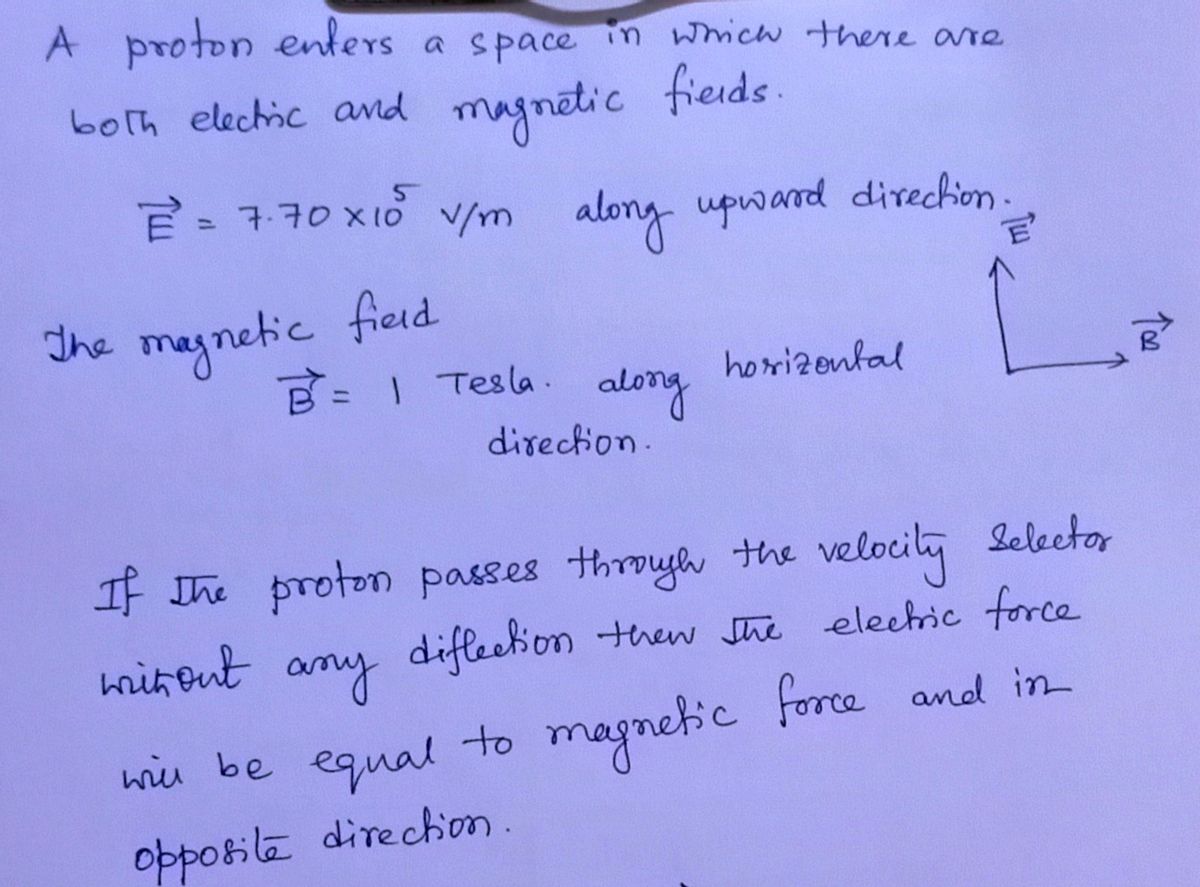 A proton enters a space in which there are
both electric and magnetic fields.
E⃗ = 7.70 × 10⁵ V/m along upward direction.
E⃗
The magnetic field
B⃗
B⃗ = 1 Tesla. along horizontal
direction.
If the proton passes through the velocity selector
without any diflection then the electric force
will be equal to magnetic force and in
opposite direction.